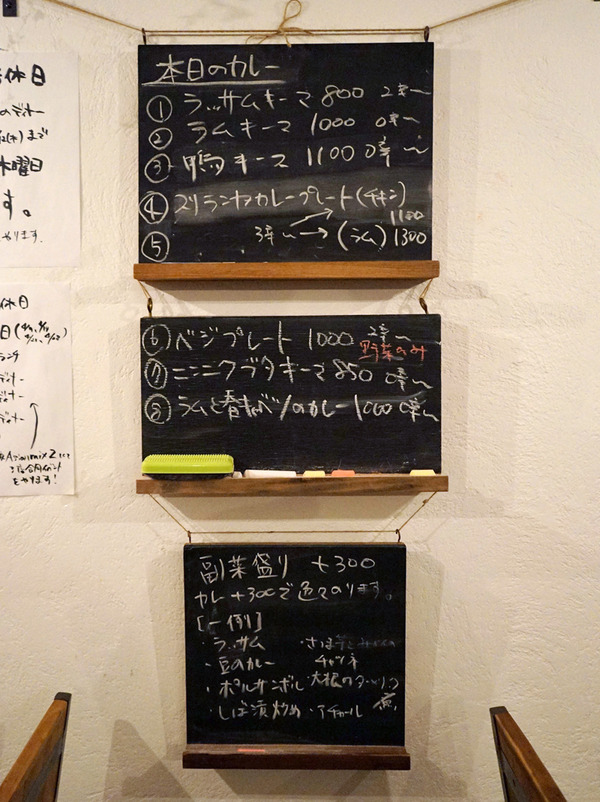 本日のカレー
① ラッサムキーマ 800 2辛〜
② ラムキーマ 1000 0辛〜
③ 鴨キーマ 1100 0辛〜
④ スリランカカレープレート(チキン)
1100
⑤ 3辛〜 → (ラム) 1300
⑥ ベジプレート 1000 2辛〜
野菜のみ
⑦ ニンニクブタキーマ 850 0辛〜
⑧ ラムと春キャベツのカレー 1000 0辛〜
副菜盛り +300
カレー+300で色々のります。
[一例]
・ラッサム
・豆のカレー チャツネ
・ポルサンボル ・大根の
・しば漬炒め ・アチャール
休日
のディナー
まで
木曜日
す。
やります。
休日
ランチ
ディナー
ディナー
ディナー
をやります!